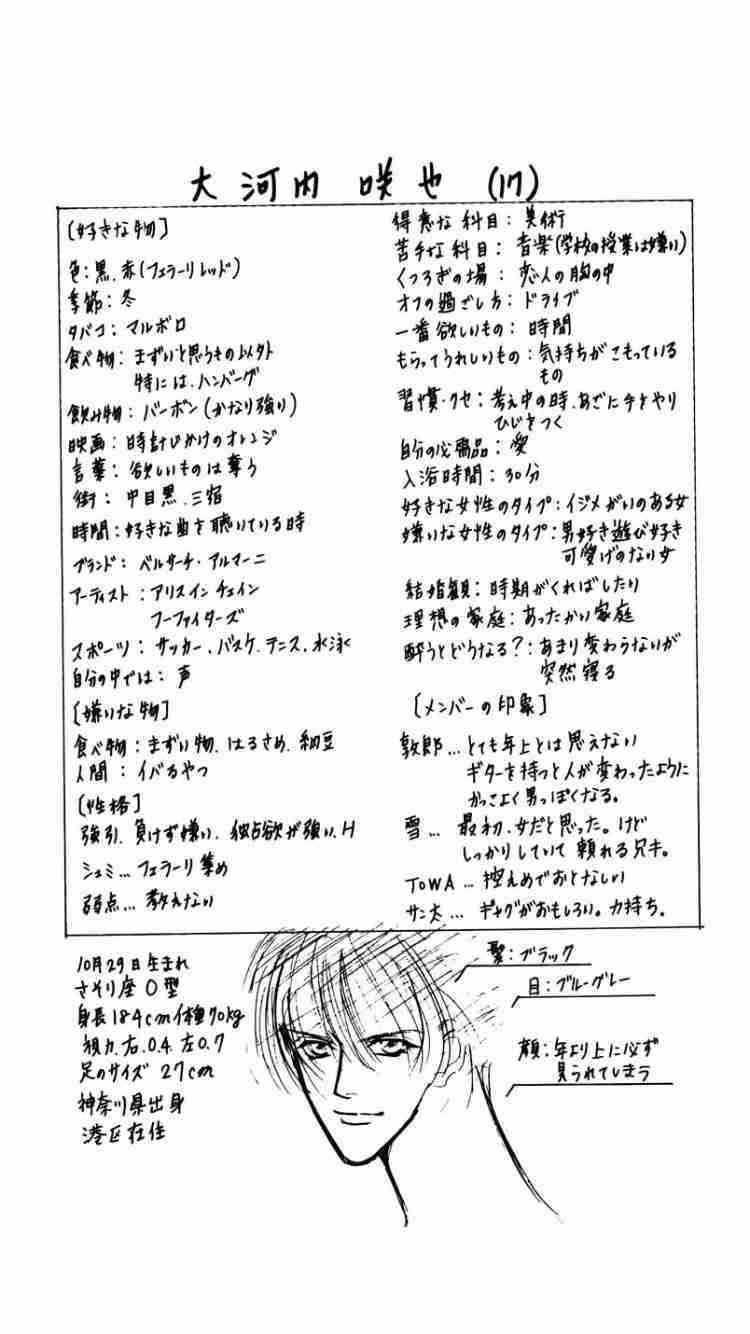 大河内 咲也 (17)
[好きな物]
色：黒、赤(フェラーリレッド)
季節：冬
タバコ：マルボロ
食べ物：まずいと思うもの以外
特には、ハンバーグ
飲み物：バーボン(かなり強り)
映画：時計じかけのオレンジ
言葉：欲しいものは奪う
街：中目黒、三宿
時間：好きな曲を聴いている時
ブランド：ベルサーチ・アルマーニ
アーティスト：アリスインチェイン
フーファイターズ
スポーツ：サッカー、バスケ、テニス、水泳
自分の中では：声
[嫌いな物]
食べ物：まずい物、はるさめ、納豆
人間：イバるやつ
[性格]
強引、負けず嫌い、独占欲が強い、H
シュミ…フェラーリ集め
弱点…教えない
得意な科目：美術
苦手な科目：音楽(学校の授業は嫌い)
くつろぎの場：恋人の胸の中
オフの過ごし方：ドライブ
一番欲しいもの：時間
もらってうれしいもの：気持ちがこもっている
もの
習慣・クセ：考え中の時、あごに手をやり
ひじをつく
自分の必需品：愛
入浴時間：30分
好きな女性のタイプ：イジメがいのある女
嫌いな女性のタイプ：男好き遊び好き
可愛げのない女
結婚観：時期がくればしたい
理想の家庭：あったかい家庭
酔うとどうなる？：あまり変わらないが
突然寝る
[メンバーの印象]
敦郎…とても年上とは思えない
ギターを持つと人が変わったように
かっこよく男っぽくなる。
雪…最初、女だと思った。けど
しっかりしていて頼れる兄キ。
TOWA…控えめでおとなしい
サン太…ギャグがおもしろい。力持ち。
10月29日生まれ
さそり座O型
身長184cm体重70kg
視力、右、0.4 左0.7
足のサイズ 27cm
神奈川県出身
港区在住
髪：ブラック
目：ブルーグレー
顔：年より上に必ず
見られてしまう